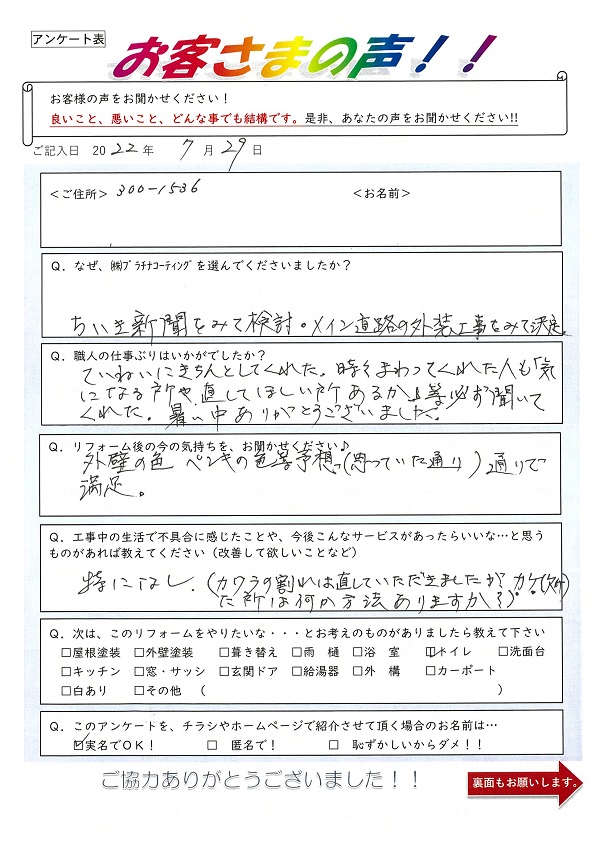 アンケート表
お客さまの声！！
お客様の声をお聞かせください！
良いこと、悪いこと、どんな事でも結構です。是非、あなたの声をお聞かせください!!
ご記入日　2022年　7月29日
＜ご住所＞ 300-1536　＜お名前＞
Q．なぜ、㈱ﾌﾟﾗﾁﾅｺｰﾃｨﾝｸﾞを選んでくださいましたか？
ちいき新聞をみて検討。メイン道路の外装工事をみて決定。
Q．職人の仕事ぶりはいかがでしたか？
ていねいにきちんとしてくれた。時々まわってくれた人も「気
になる所や直してほしい所あるか」等必ず聞いて
くれた。暑い中ありがとうございました。
Q．リフォーム後の今の気持ちを、お聞かせください♪
外壁の色 ペンキの色等予想(思っていた通り)通りで
満足。
Q．工事中の生活で不具合に感じたことや、今後こんなサービスがあったらいいな…と思う
ものがあれば教えてください（改善して欲しいことなど）
特になし.(カワラの割れは直していただきましたが カケ
た所は何か方法ありますか？)
Q．次は、このリフォームをやりたいな・・・とお考えのものがありましたら教えて下さい
□屋根塗装　□外壁塗装　□葺き替え　□雨　樋　□浴　室　☑トイレ　□洗面台
□キッチン　□窓・サッシ　□玄関ドア　□給湯器　□外　構　□カーポート
□白あり　□その他　（　）
Q．このアンケートを、チラシやホームページで紹介させて頂く場合のお名前は…
☑実名でOK！　□　匿名で！　□　恥ずかしいからダメ！！
ご協力ありがとうございました！！
裏面もお願いします。